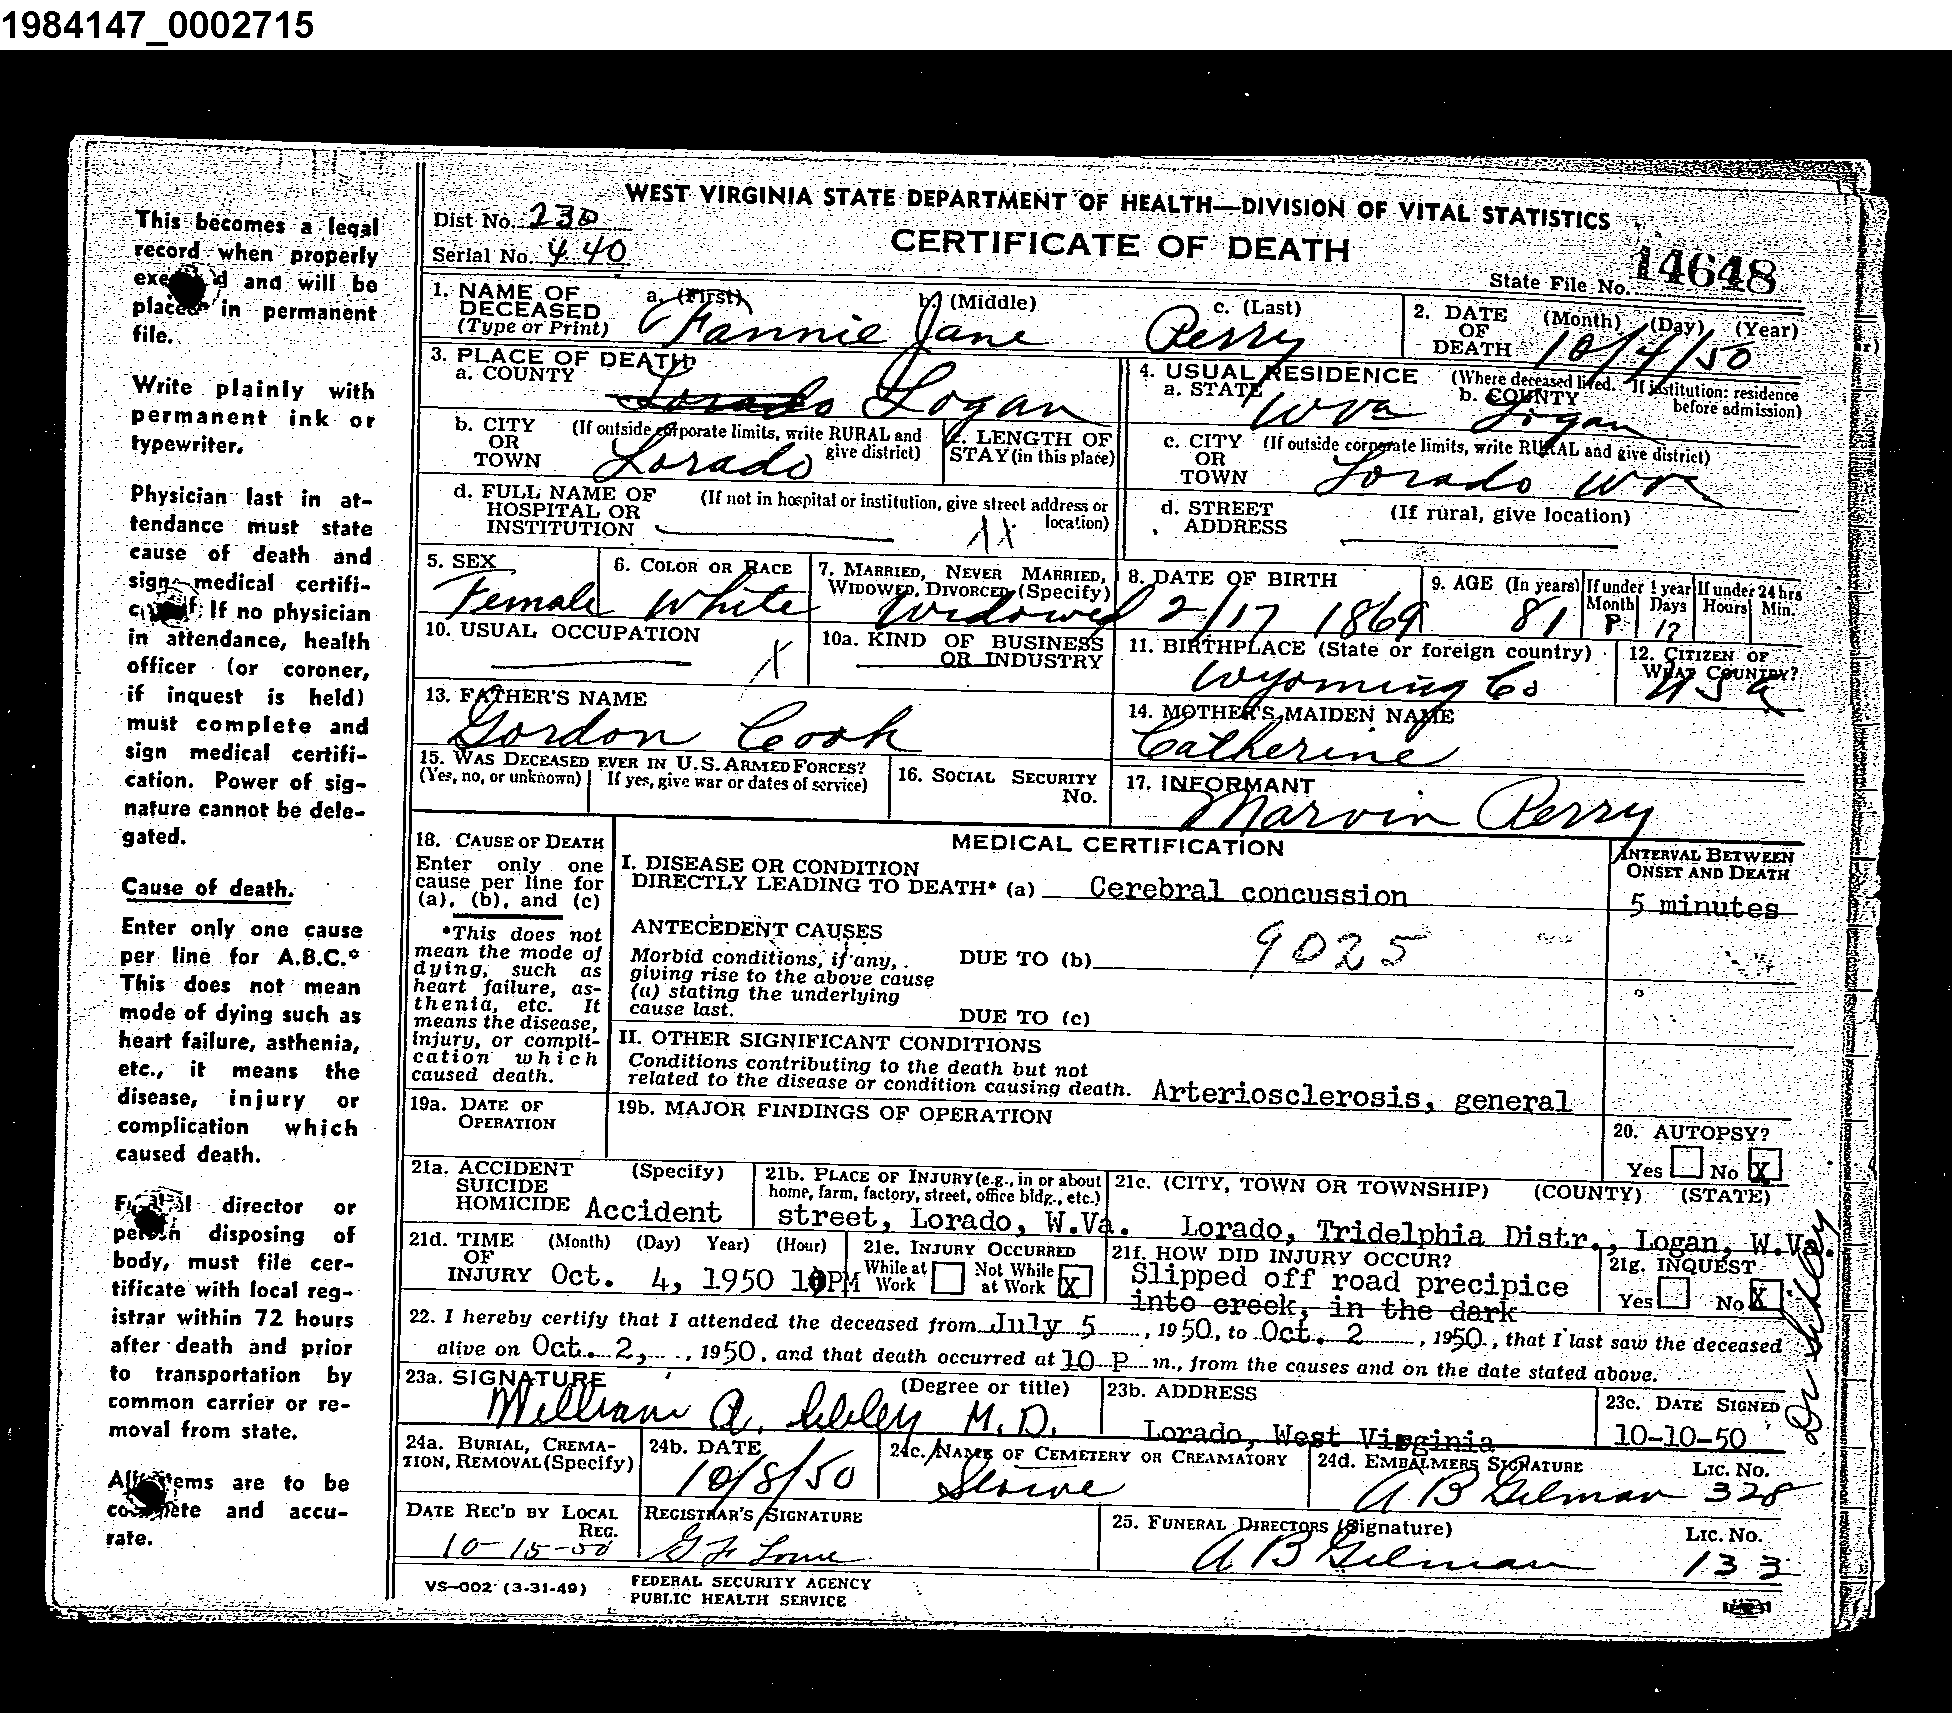 1984147_0002715
WEST VIRGINIA STATE DEPARTMENT OF HEALTH—DIVISION OF VITAL STATISTICS
CERTIFICATE OF DEATH
Dist No. 230
Serial No. 440
State File No. 14648
This becomes a legal
record when properly
and will be
placed in permanent
file.
Write plainly with
permanent ink or
typewriter.
Physician last in at-
tendance must state
cause of death and
sign medical certifi-
If no physician
in attendance, health
officer (or coroner,
if inquest is held)
must complete and
sign medical certifi-
cation. Power of sig-
nature cannot be dele-
gated.
Cause of death.
Enter only one cause
per line for A.B.C.*
This does not mean
mode of dying such as
heart failure, asthenia,
etc., it means the
disease, injury or
complication which
caused death.
director or
disposing of
body, must file cer-
tificate with local reg-
istrar within 72 hours
after death and prior
to transportation by
common carrier or re-
moval from state.
are to be
and accu-
rate.
1. NAME OF DECEASED (Type or Print) a. (First) b. (Middle) c. (Last)
Fannie Jane Perry
2. DATE OF DEATH (Month) (Day) (Year)
10/4/50
3. PLACE OF DEATH
a. COUNTY Lorado Logan
4. USUAL RESIDENCE (Where deceased lived. If institution: residence before admission)
a. STATE WVa b. COUNTY Logan
b. CITY OR TOWN (If outside corporate limits, write RURAL and give district) Lorado
c. LENGTH OF STAY (in this place)
c. CITY OR TOWN (If outside corporate limits, write RURAL and give district)
Lorado WVa
d. FULL NAME OF HOSPITAL OR INSTITUTION (If not in hospital or institution, give street address or location)
d. STREET ADDRESS (If rural, give location)
5. SEX Female
6. COLOR OR RACE White
7. MARRIED, NEVER MARRIED, WIDOWED, DIVORCED (Specify) Widowed
8. DATE OF BIRTH 2/17 1869
9. AGE (In years) 81
If under 1 year Month Days 17
If under 24 hrs Hours Min.
10. USUAL OCCUPATION X
10a. KIND OF BUSINESS OR INDUSTRY
11. BIRTHPLACE (State or foreign country) Wyoming Co
12. CITIZEN OF WHAT COUNTRY? USA
13. FATHER'S NAME
Gordon Cook
14. MOTHER'S MAIDEN NAME
Catherine
15. WAS DECEASED EVER IN U.S. ARMED FORCES?
(Yes, no, or unknown) If yes, give war or dates of service)
16. SOCIAL SECURITY No.
17. INFORMANT
Marvin Perry
18. CAUSE OF DEATH
Enter only one
cause per line for
(a), (b), and (c)
*This does not
mean the mode of
dying, such as
heart failure, as-
thenia, etc. It
means the disease,
injury, or compli-
cation which
caused death.
MEDICAL CERTIFICATION
I. DISEASE OR CONDITION
DIRECTLY LEADING TO DEATH* (a) Cerebral concussion
INTERVAL BETWEEN ONSET AND DEATH
5 minutes
ANTECEDENT CAUSES
Morbid conditions, if any,
giving rise to the above cause
(a) stating the underlying
cause last.
DUE TO (b) 9025
DUE TO (c)
II. OTHER SIGNIFICANT CONDITIONS
Conditions contributing to the death but not
related to the disease or condition causing death. Arteriosclerosis, general
19a. DATE OF OPERATION
19b. MAJOR FINDINGS OF OPERATION
20. AUTOPSY?
Yes No X
21a. ACCIDENT SUICIDE HOMICIDE (Specify) Accident
21b. PLACE OF INJURY (e.g., in or about home, farm, factory, street, office bldg., etc.)
street, Lorado, W.Va.
21c. (CITY, TOWN OR TOWNSHIP) (COUNTY) (STATE)
Lorado, Tridelphia Distr., Logan, W.Va.
21d. TIME OF INJURY (Month) (Day) Year) (Hour)
Oct. 4, 1950 10PM
21e. INJURY OCCURRED
While at Work Not While at Work X
21f. HOW DID INJURY OCCUR?
Slipped off road precipice
into creek, in the dark
21g. INQUEST
Yes No X
22. I hereby certify that I attended the deceased from July 5, 1950, to Oct. 2, 1950, that I last saw the deceased
alive on Oct. 2, 1950, and that death occurred at 10 P m., from the causes and on the date stated above.
23a. SIGNATURE (Degree or title)
William A. Sibley M.D.
23b. ADDRESS
Lorado, West Virginia
23c. DATE SIGNED
10-10-50
Dr Sibley
24a. BURIAL, CREMA-
TION, REMOVAL (Specify)
24b. DATE
10/8/50
24c. NAME OF CEMETERY OR CREAMATORY
Stowe
24d. EMBALMERS SIGNATURE LIC. NO.
A B Gilman 328
DATE REC'D BY LOCAL REG.
10-15-50
REGISTRAR'S SIGNATURE
25. FUNERAL DIRECTORS (Signature) LIC. NO.
A B Gilman 133
VS-002 (3-31-49)
FEDERAL SECURITY AGENCY
PUBLIC HEALTH SERVICE